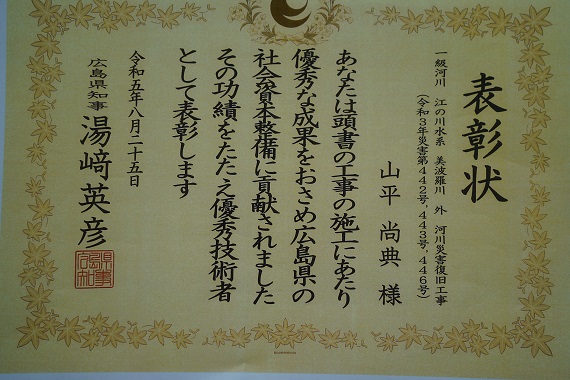 表彰状
一級河川 江の川水系 美波羅川 外 河川災害復旧工事
(令和3年災害第442号,443号,446号)
山平 尚典 様
あなたは頭書の工事の施工にあたり
優秀な成果をおさめ広島県の
社会資本整備に貢献されました
その功績をたたえ優秀技術者
として表彰します
令和五年八月二十五日
広島県知事 湯﨑英彦